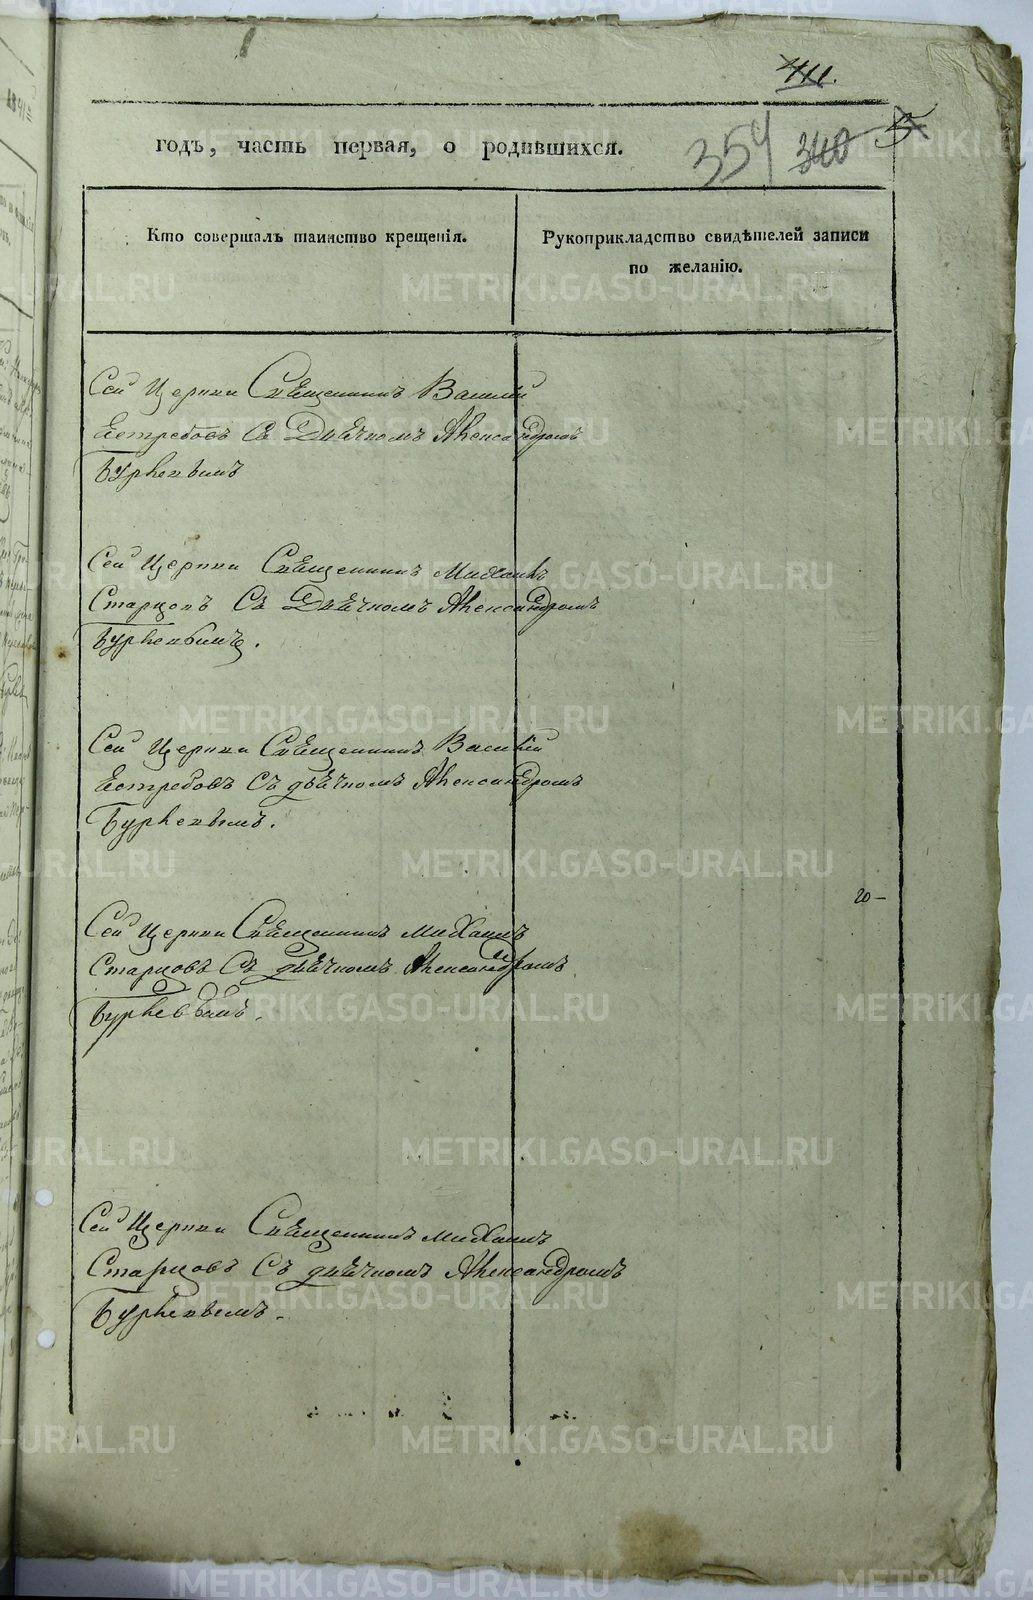 411.
годъ, часть первая, о родившихся.
354 340
Кто совершалъ таинство крещенія.
Рукоприкладство свидѣтелей записи
по желанію.
Сей Церкви Священникъ Василій
Ястребовъ Съ Дьячкомъ Александромъ
Сей Церкви Священникъ Михаилъ
Старцовъ Съ Дьячкомъ Александромъ
Сей Церкви Священникъ Василій
Ястребовъ Съ дьячкомъ Александромъ
20-
Сей Церкви Священникъ Михаилъ
Старцовъ Съ дьячкомъ Александромъ
Сей Церкви Священникъ Михаилъ
Старцовъ Съ дьячкомъ Александромъ
METRIKI.GASO-URAL.RU